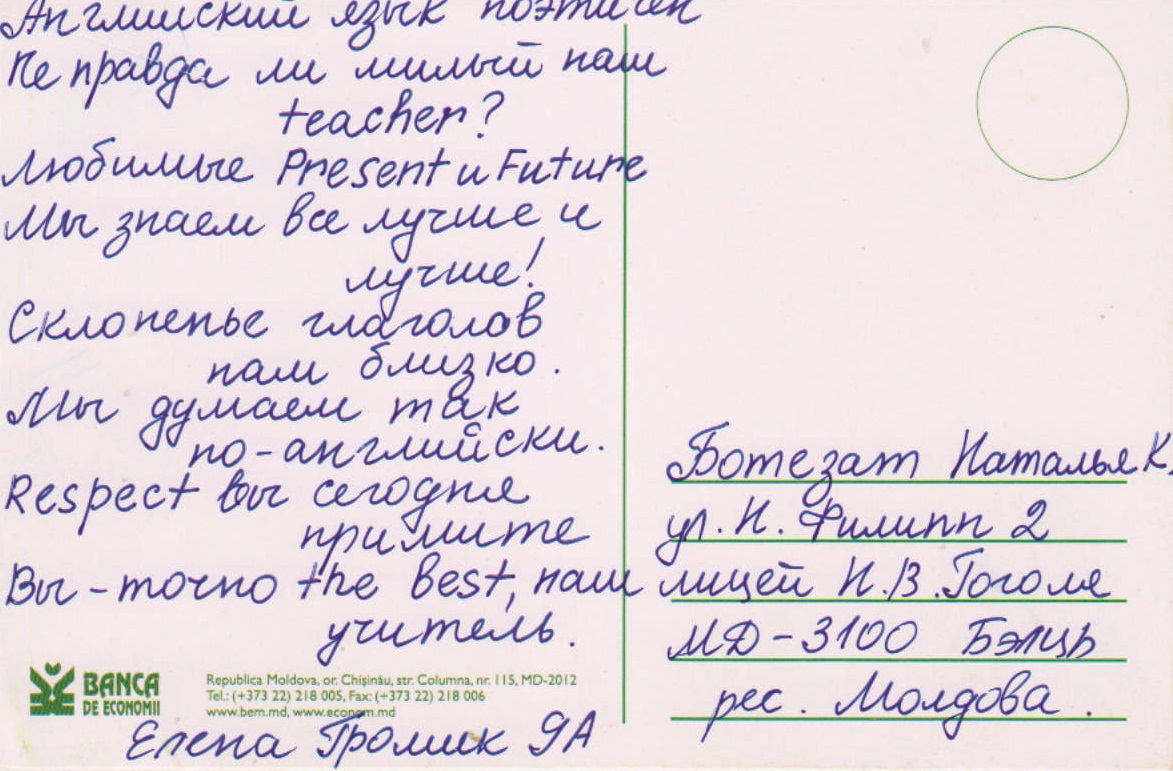 Английский язык поэтичен
Не правда ли милый наш
teacher?
Любимые Present и Future
Мы знаем все лучше и
лучше!
Склоненье глаголов
нам близко.
Мы думаем так
по-английски.
Respect вы сегодня
примите
Вы - точно the best, наш
учитель.
BANCA
DE ECONOMII
Republica Moldova, or. Chişinău, str. Columna, nr. 115, MD-2012
Tel.: (+373 22) 218 005, Fax: (+373 22) 218 006
www.bem.md, www.econom.md
Елена Громик 9А
Ботезат Наталье К.
ул. И. Филипп 2
лицей Н.В. Гоголя
МД-3100 Бэлць
рес. Молдова.